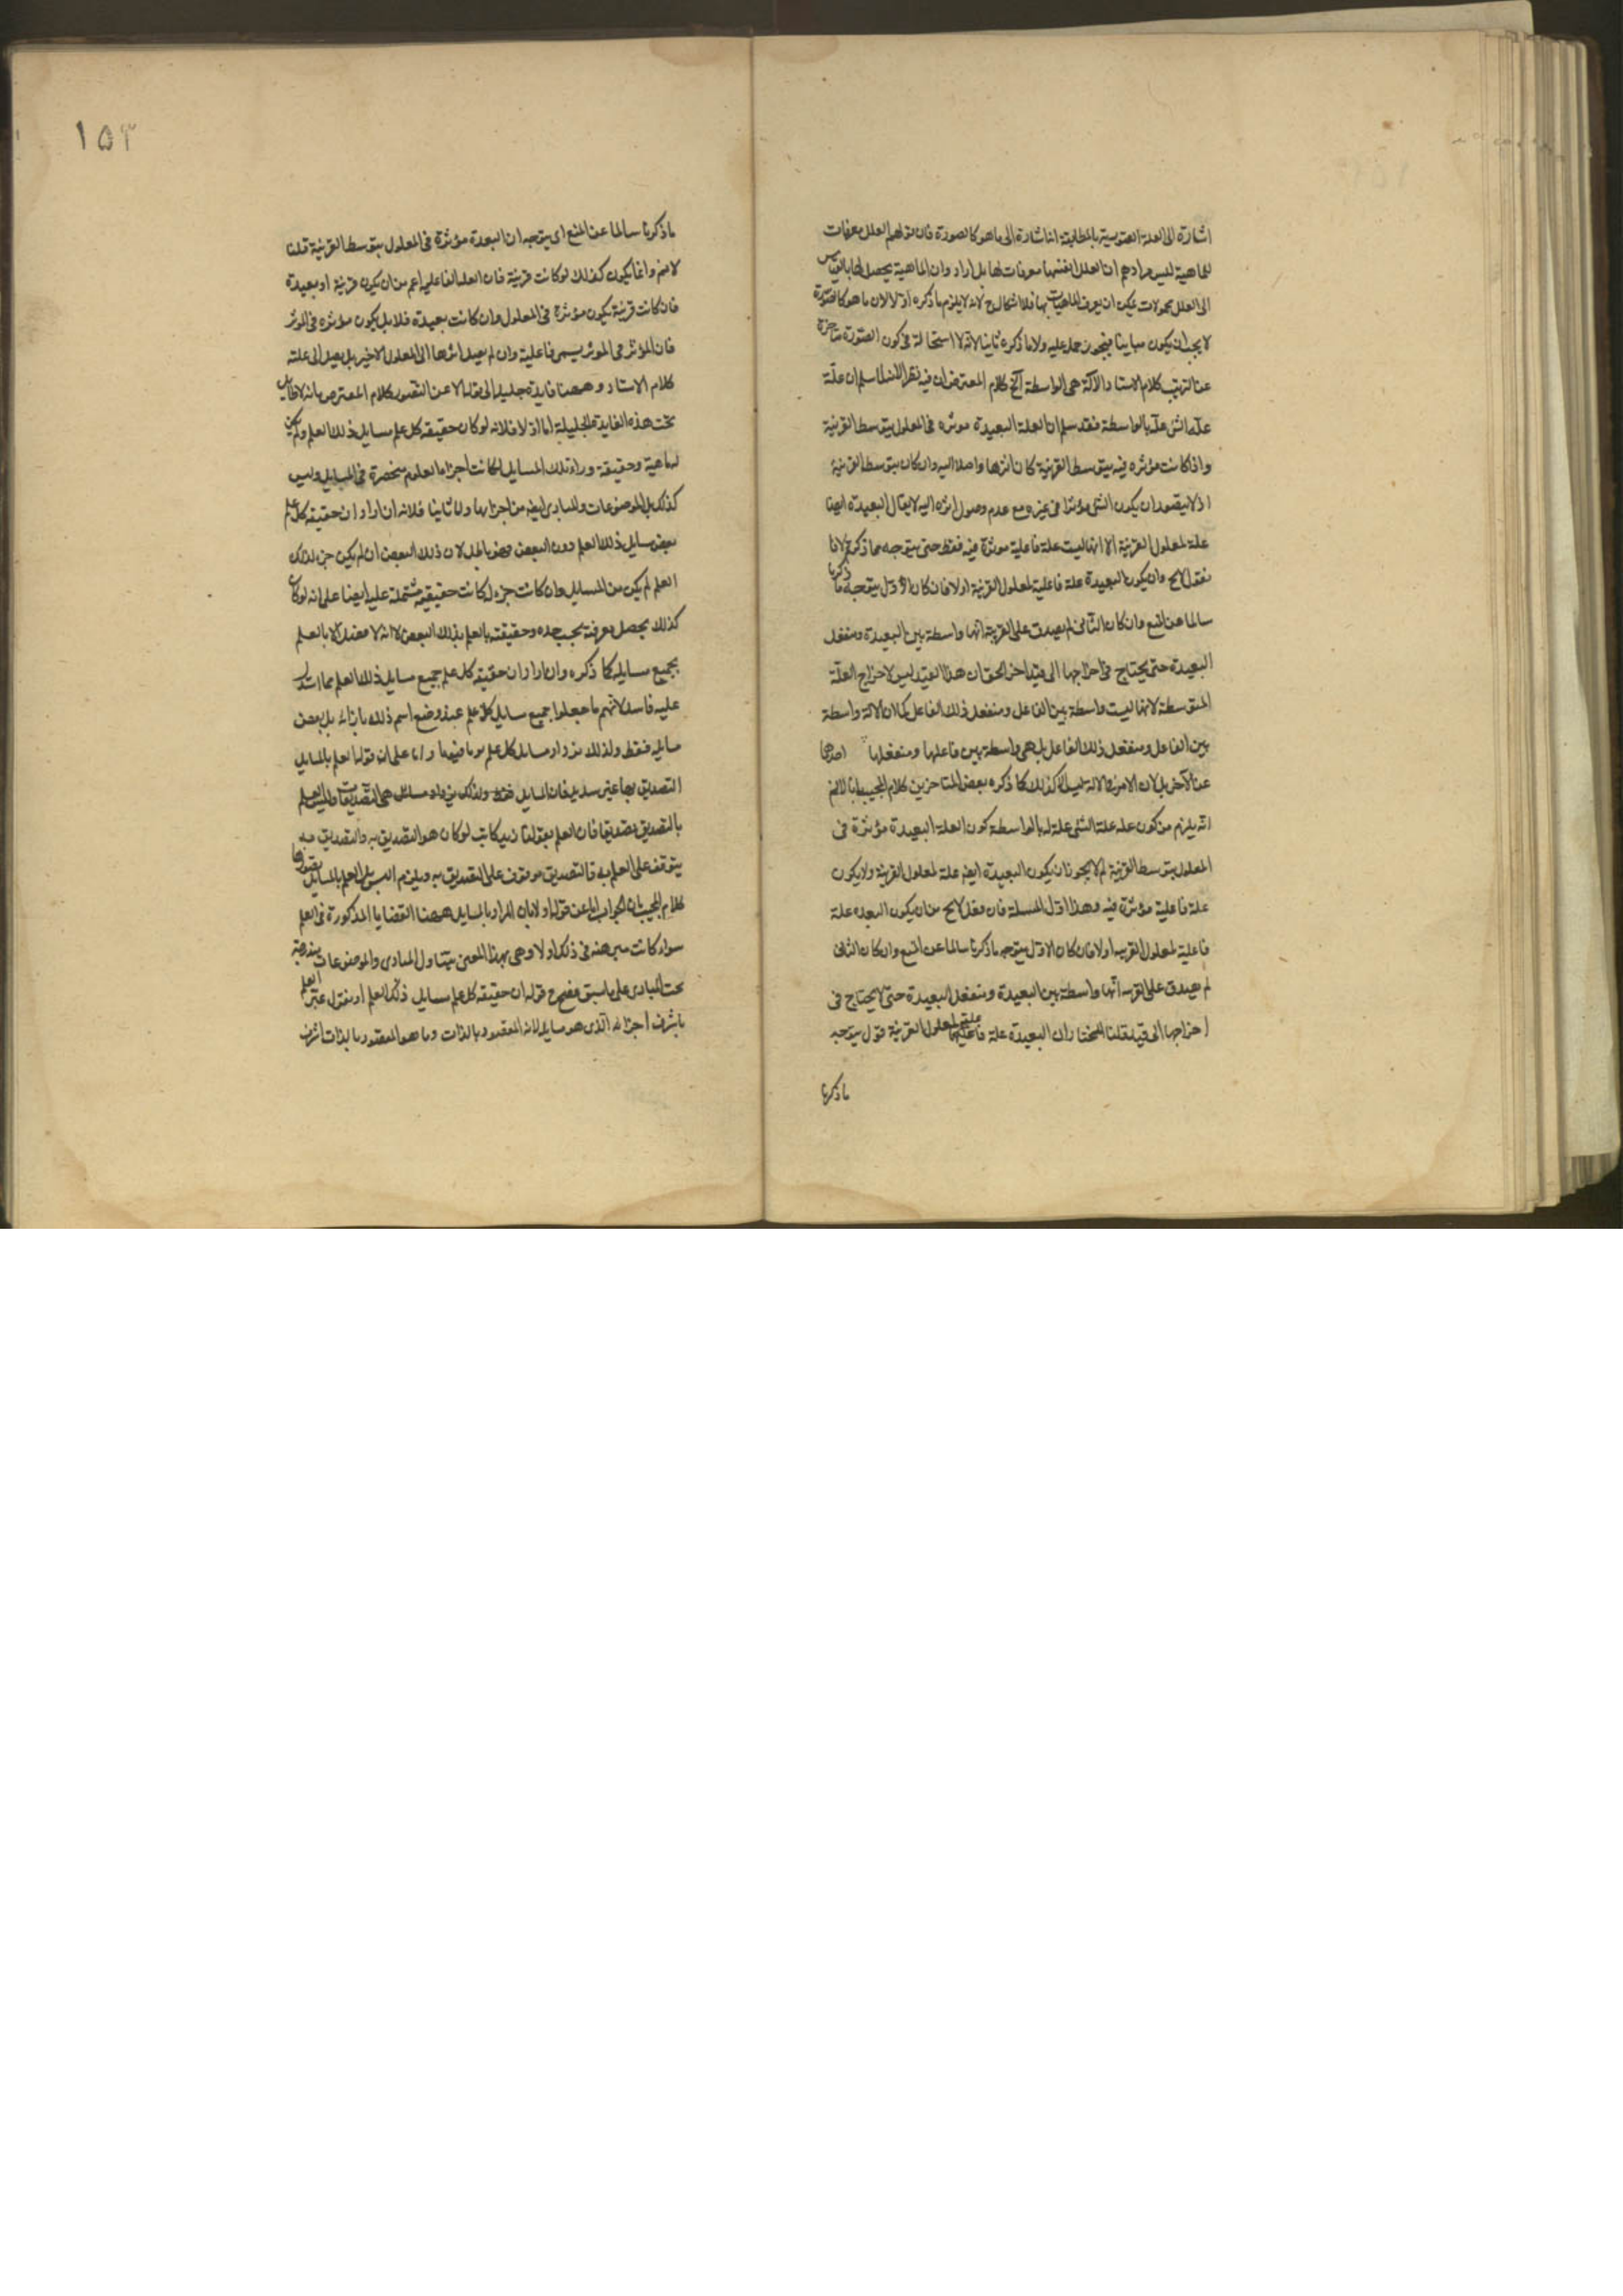 اشارة الى العلة الصورية بالمطابقة انما اشارة الى ما هو كالصورة فان قولهم العلل معرفات
للماهية ليس مرادهم ان العلل انفسها معرفات لها بل اراد وان الماهية يحصل لها بالقياس
الى العلل محمولات يمكن ان يعرف الماهيات بها فلا اشكال ح لانه لا يلزم ما ذكره اولا لان ما هو كالصورة
لا يجب ان يكون مباينا فيجوز حمله عليه ولا ما ذكره ثانيا لانه لا استحالة في كون الصورة متاخرة
عن الترتيب كلام الاستاد الآلة هى الواسطة آلخ كلام المعترض ان فيه نظر اللنا سلم ان علة
علة الشئ علة بالواسطة فقد سلم ان العلة البعيدة موثره في المعلول بتوسط القريبة
واذا كانت مؤثره فيه بتوسط القريبة كان اثرها واصلا اليه وان كان بتوسط القريبة
اذ لا يتصور ان يكون الشئ مؤثرا في غيره مع عدم وصول اثره اليه لا يقال البعيدة ايضا
علة لمعلول القريبة الا انها ليست علة فاعلية موثرة فيه فقط حتى يتوجه ما ذكرتم لانا
نقول لا يخ وان يكون البعيدة علة فاعلية لمعلول القريبة اولا فان كان الاول يتوجه ما ذكرنا
سالما عن المنع وان كان الثانى لم يصدق على القريبة انها واسطة بين البعيدة ومنفعل
البعيدة حتى يحتاج في اخراجها الى قيد اخر الحق ان هذا القيد ليس لاخراج العلة
المتوسطة لانها ليست واسطة بين الفاعل ومنفعل ذلك الفاعل كما ان الالة واسطة
بين الفاعل ومنفعل ذلك الفاعل بل هى واسطة بين فاعلها ومنفعلها احدهما
عن الآخر بل لان الامر في الالة ليس كذلك كما ذكره بعض المتاخرين كلام المجيب انا لا نم
انه يلزم من كون علة علة الشئ علة له بالواسطة كون العلة البعيدة مؤثرة في
المعلول بتوسط القريبة لم لا يجوز ان يكون البعيدة ايضه علة لمعلول القريبة ولا يكون
علة فاعلية مؤثرة فيه وهذا اول المسئلة فان فقل لا يخ من ان يكون البعيده علة
فاعلية لمعلول القريبه اولا فان كان الاول يتوجه ما ذكرنا سالما عن المنع وان كان الثانى
لم يصدق على القريبه انها واسطة بين البعيدة ومنفعل البعيدة حتى لا يحتاج في
اخراجها الى قيد قلنا المختار ان البعيدة علة فاعلية لمعلول القريبة قول يتوجه
ما ذكرنا
١٥٣
ما ذكرنا سالما عن المنع اى يتوجه ان البعدة مؤثرة في المعلول بتوسط القريبة قلنا
لا نم وانما يكون كذلك لو كانت قريبة فان العلة الفاعلية اعم من ان يكون قريبة او بعيدة
فان كانت قريبة يكون مؤثرة في المعلول وان كانت بعيدة فلا بل يكون مؤثره في المؤثر
فان المؤثر في الموثر يسمى فاعلية وان لم يصل اثرها الى المعلول الاخير بل يصل الى علته
كلام الاستاد وههنا فايدة جليلة الى قوله الا عن التصور كلام المعترض بانه لا فايدة
تحت هذه الفايدة الجليلة اما اولا فلانه لو كان حقيقه كل علم مسايل ذلك العلم ولم يكن
له ماهية وحقيقة وراء تلك المسايل لكانت اجزاء العلوم منحصرة في المسايل وليس
كذلك بل الموضوعات والمبادى ايضه من اجزائها واما ثانيا فلانه ان اراد ان حقيقه كل علم
بعض مسايل ذلك العلم دون البعض فهو باطل لان ذلك البعض ان لم يكن جزء لذلك
العلم لم يكن من المسايل وان كانت جزء له كانت حقيقته مشتملة عليه ايضا على انه لو كان
كذلك يحصل معرفته بحسب حده وحقيقته بالعلم بذلك البعض لانه لا معتبر الا بالعلم
بجميع مسايله كما ذكره وان اراد ان حقيقه كل علم جميع مسايل ذلك العلم مما استدل
عليه فاسد لانهم ما جعلوا جميع مسايل كل علم عند وضع اسم ذلك بازائه بل بعض
مسايله فقط ولذلك يزداد مسايل كل علم يوما فيوما واما على ان قولنا العلم بالمسايل
التصديق بها غير سديد فان المسايل فقط ولذلك يزداد مسايل هى التصديقات وليس العلم
بالتصديق تصديقا فان العلم بقولنا زيد كاتب لو كان هو التصديق به والتصديق به
يتوقف على العلم به فالتصديق موقوف على التصديق به ويلزم الدور بل العلم بالمسايل تصورها
كلام المجيب ان الجواب اما عن قوله اولا بان المراد بالمسايل ههنا القضايا المذكورة في العلم
سواء كانت مبرهنه في ذلك اولا وهى بهذا المعنى يتناول المبادى والموضوعات مندرجة
تحت المبادى على ما سبق فيصح ح قوله ان حقيقه كل علم مسايل ذلك العلم او نقول عبر العلم
باشرف اجزائه الذى هو مسايله لانه المقصود بالذات وما هو المقصود بالذات اشرف